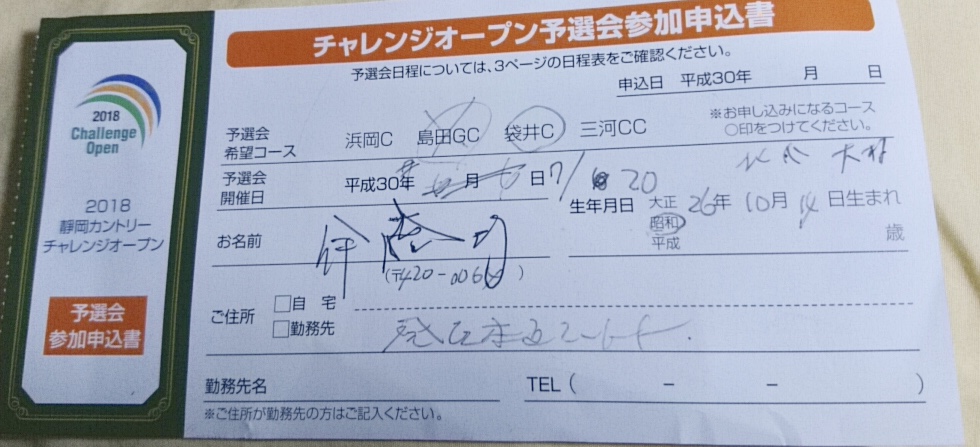 チャレンジオープン予選会参加申込書
予選会日程については、3ページの日程表をご確認ください。
申込日 平成30年 月 日
2018
Challenge
Open
2018
静岡カントリー
チャレンジオープン
予選会
参加申込書
予選会
希望コース
浜岡C 島田GC 袋井C 三河CC
※お申し込みになるコース
○印をつけてください。
予選会
開催日
平成30年 月 日 7/ 20
生年月日 大正 昭和 平成 26年 10月 14日生まれ
歳
お名前
(〒420-006 )
ご住所
□自 宅
□勤務先
勤務先名
TEL ( − − )
※ご住所が勤務先の方はご記入ください。